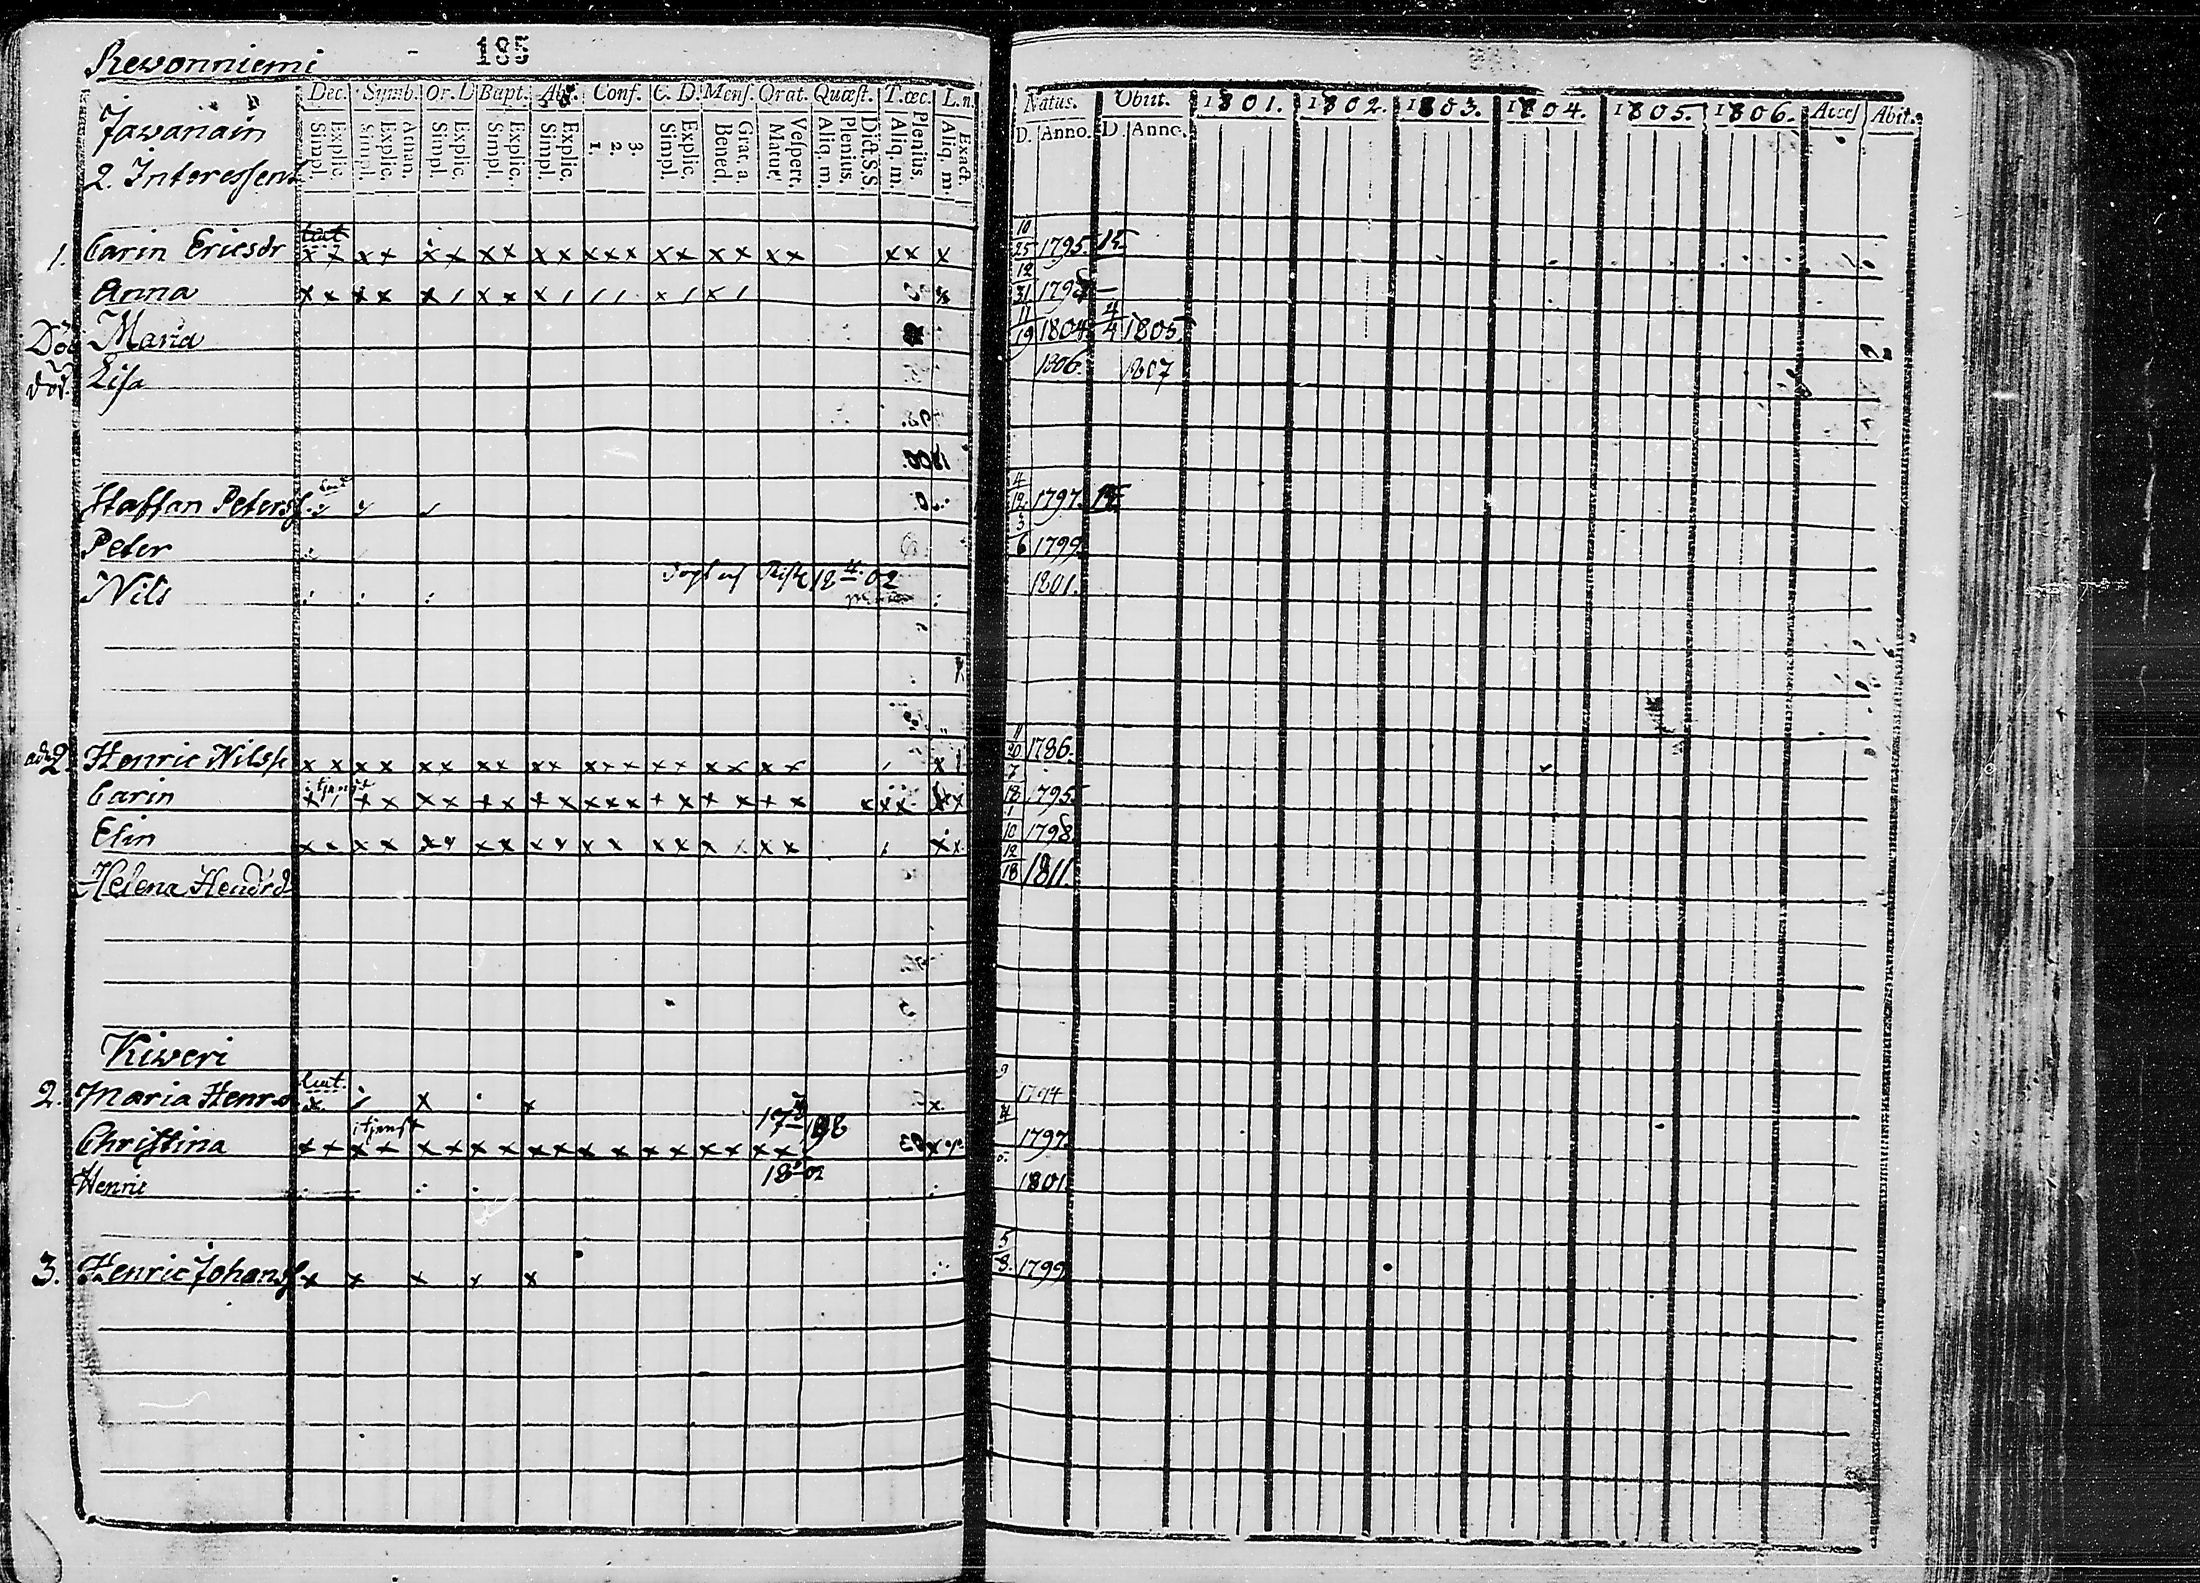 Rewonniemi 185
Javanain
2. Interessent
Dec. Symb. Or. D Bapt. Abs. Conf. C. D. Mens. Orat. Quæst. T. œc. L. n.
Simpl. Explic. Simpl. Explic. Athan. Simpl. Explic. Simpl. Explic. Simpl. Explic. 1. 2. 3. Simpl. Explic. Bened. Grat. a. Matut. Vespert. Aliq. m. Plenius. Dict. S. S. Aliq. m. Plenius. Aliq. m. Exact.
Natus. Obiit. 1801. 1802. 1803. 1804. 1805. 1806. Acces Abit.
D. Anno. D. Anno.
1. Carin Ericsdr x x x x x x x x x x x x x x x x x x x x x x 10/25 1795.
Anna x x x x x / x x x / / / x / x / 12/31
Död Maria 11/19 1804 4/4 1805.
död. Lisa 1806. 1807
Staffan Peterss 4/12 1797.
Peter 3/6 1799
Nils 18 02 1801.
2. Henric Nilss x x x x x x x x x x x x x x x x x x x 11/20 1786.
i tjenst
Carin 7/18 1795
Elin 1/10 1798
Helena Hendrd 12/18 1811.
Kiweri
2. Maria Henrd x / x x x 1794
i tjenst
Christina x x x x x x x x x x x x x x x x x x 1797
Henric 18 02 1801
3. Henric Johanss x x x x x 5/8. 1799